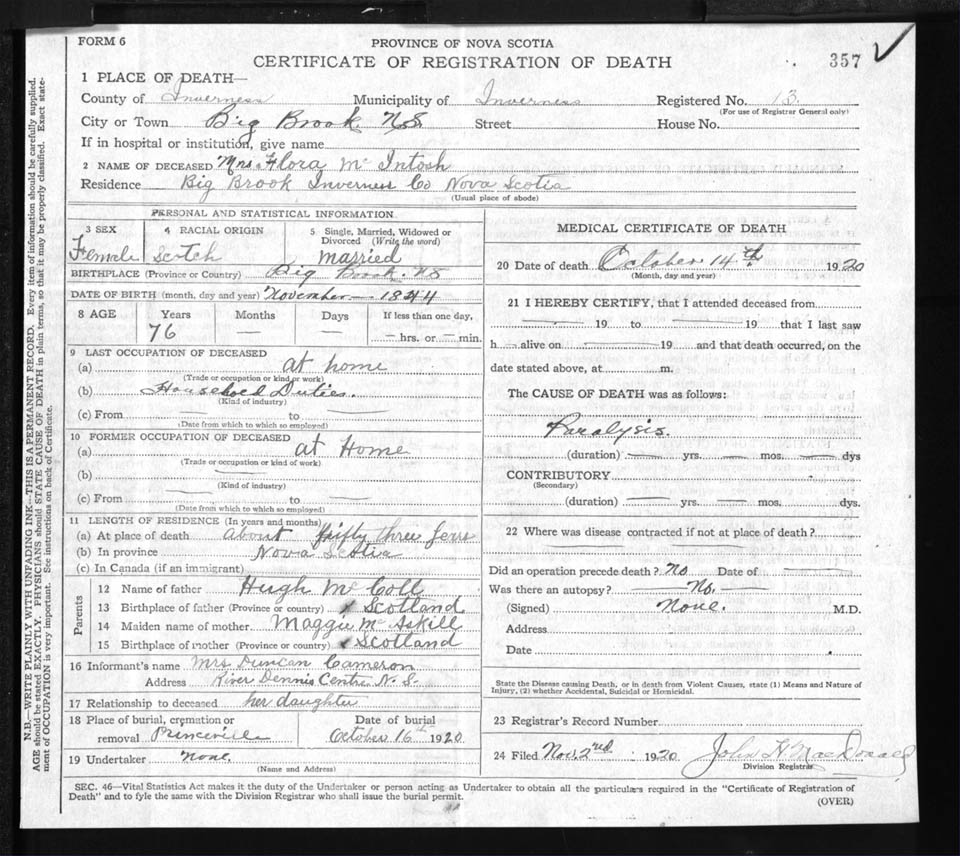 FORM 6
PROVINCE OF NOVA SCOTIA
CERTIFICATE OF REGISTRATION OF DEATH
357
1 PLACE OF DEATH—
County of Inverness Municipality of Inverness Registered No. 13
(For use of Registrar General only)
City or Town Big Brook. NS Street House No.
If in hospital or institution, give name
2 NAME OF DECEASED Mrs Flora Mc Intosh
Residence Big Brook Inverness Co Nova Scotia
(Usual place of abode)
PERSONAL AND STATISTICAL INFORMATION
3 SEX 4 RACIAL ORIGIN 5 Single, Married, Widowed or
Divorced (Write the word)
Female Scotch married
BIRTHPLACE (Province or Country) Big Brook. NS
DATE OF BIRTH (month, day and year) November — 1844
8 AGE Years Months Days If less than one day,
76 — — — hrs. or — min.
9 LAST OCCUPATION OF DECEASED
(a) at home
(Trade or occupation or kind or work)
(b) Household Duties.
(Kind of industry)
(c) From — to —
(Date from which to which so employed)
10 FORMER OCCUPATION OF DECEASED
(a) at Home
(Trade or occupation or kind of work)
(b) —
(Kind of industry)
(c) From — to —
(Date from which to which so employed)
11 LENGTH OF RESIDENCE (In years and months)
(a) At place of death about fifty three years
(b) In province Nova Scotia
(c) In Canada (if an immigrant)
Parents
12 Name of father Hugh Mc Coll
13 Birthplace of father (Province or country) Scotland
14 Maiden name of mother Maggie Mc Askill
15 Birthplace of mother (Province or country) Scotland
16 Informant's name Mrs Duncan Cameron
Address River Dennis Centre N. S.
17 Relationship to deceased her daughter
18 Place of burial, cremation or Date of burial
removal Princeville October 16th 1920
19 Undertaker none.
(Name and Address)
MEDICAL CERTIFICATE OF DEATH
20 Date of death October 14th 1920
(Month, day and year)
21 I HEREBY CERTIFY, that I attended deceased from
— 19 to — 19 that I last saw
h alive on — 19 and that death occurred, on the
date stated above, at m.
The CAUSE OF DEATH was as follows:
Paralysis.
(duration) — yrs. — mos. — dys
CONTRIBUTORY
(Secondary)
(duration) — yrs. — mos. — dys.
22 Where was disease contracted if not at place of death?
Did an operation precede death? No Date of —
Was there an autopsy? No.
(Signed) None. M.D.
Address
Date
State the Disease causing Death, or in death from Violent Causes, state (1) Means and Nature of
Injury, (2) whether Accidental, Suicidal or Homicidal.
23 Registrar's Record Number
24 Filed Nov. 2nd 1920 John H MacDonald
Division Registrar
SEC. 46—Vital Statistics Act makes it the duty of the Undertaker or person acting as Undertaker to obtain all the particulars required in the "Certificate of Registration of
Death" and to fyle the same with the Division Registrar who shall issue the burial permit.
(OVER)
N.B.—WRITE PLAINLY WITH UNFADING INK—THIS IS A PERMANENT RECORD. Every item of information should be carefully supplied.
AGE should be stated EXACTLY. PHYSICIANS should STATE CAUSE OF DEATH in plain terms, so that it may be properly classified. Exact state-
ment of OCCUPATION is very important. See instructions on back of Certificate.